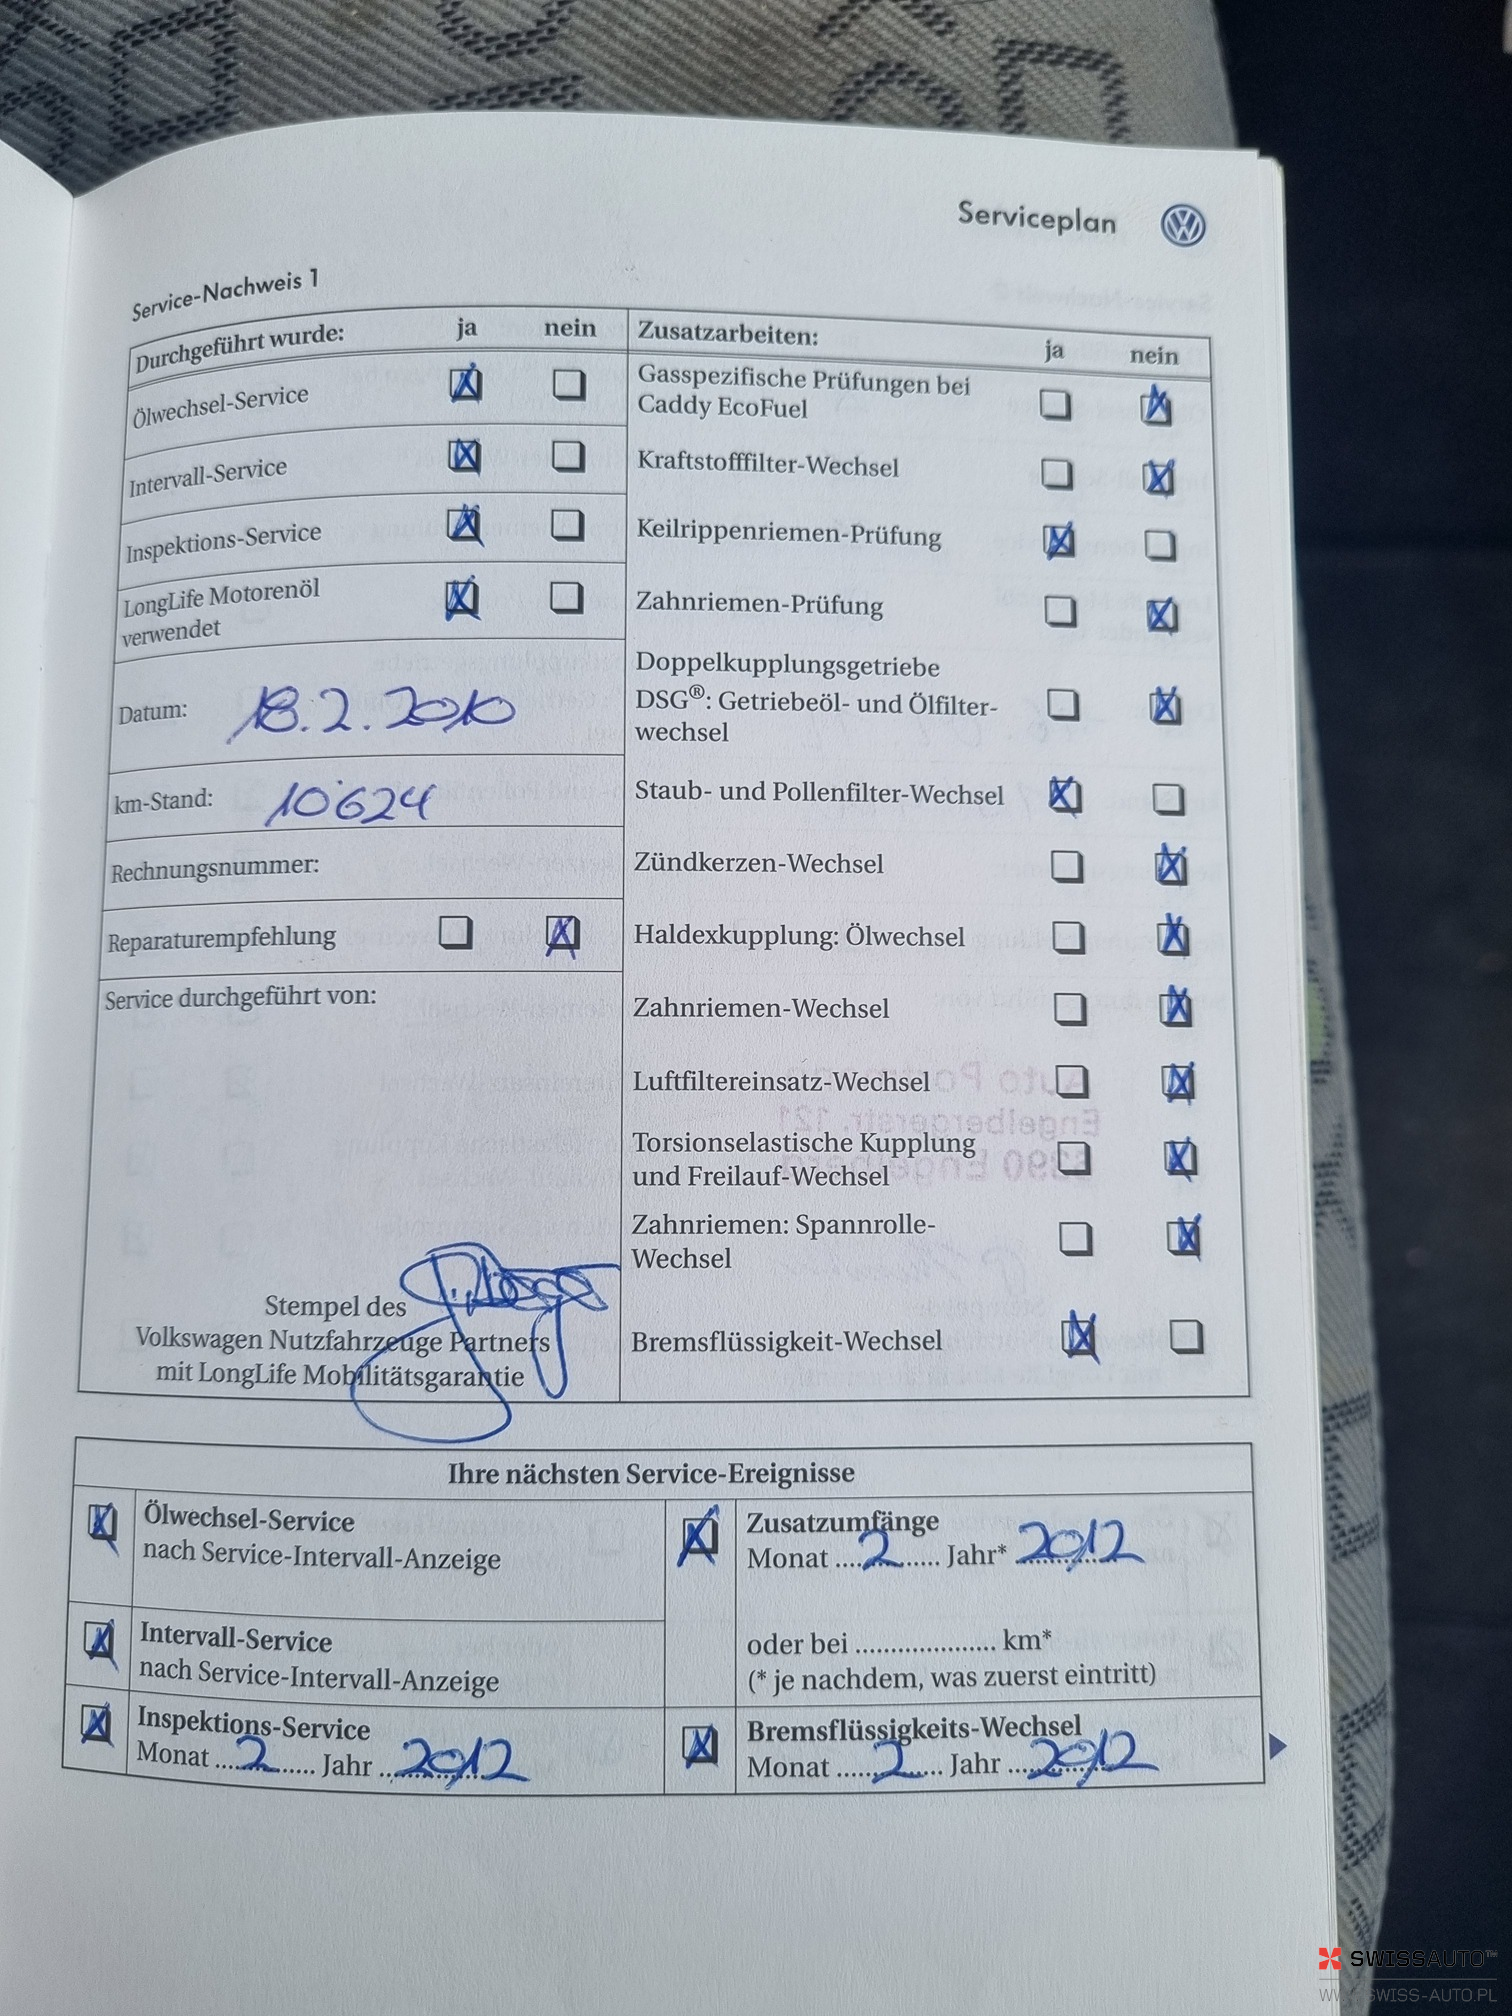 Serviceplan
Service-Nachweis 1
Durchgeführt wurde: ja nein
Ölwechsel-Service
Intervall-Service
Inspektions-Service
LongLife Motorenöl
verwendet
Datum: 18.2.2010
km-Stand: 10'624
Rechnungsnummer:
Reparaturempfehlung
Service durchgeführt von:
Stempel des
Volkswagen Nutzfahrzeuge Partners
mit LongLife Mobilitätsgarantie
Zusatzarbeiten: ja nein
Gasspezifische Prüfungen bei
Caddy EcoFuel
Kraftstofffilter-Wechsel
Keilrippenriemen-Prüfung
Zahnriemen-Prüfung
Doppelkupplungsgetriebe
DSG®: Getriebeöl- und Ölfilter-
wechsel
Staub- und Pollenfilter-Wechsel
Zündkerzen-Wechsel
Haldexkupplung: Ölwechsel
Zahnriemen-Wechsel
Luftfiltereinsatz-Wechsel
Torsionselastische Kupplung
und Freilauf-Wechsel
Zahnriemen: Spannrolle-
Wechsel
Bremsflüssigkeit-Wechsel
Ihre nächsten Service-Ereignisse
Ölwechsel-Service
nach Service-Intervall-Anzeige
Intervall-Service
nach Service-Intervall-Anzeige
Inspektions-Service
Monat ...2... Jahr ...2012...
Zusatzumfänge
Monat ...2... Jahr* ...2012...
oder bei .................... km*
(* je nachdem, was zuerst eintritt)
Bremsflüssigkeits-Wechsel
Monat ...2... Jahr ...2012...
SWISSAUTO™
WWW.SWISS-AUTO.PL